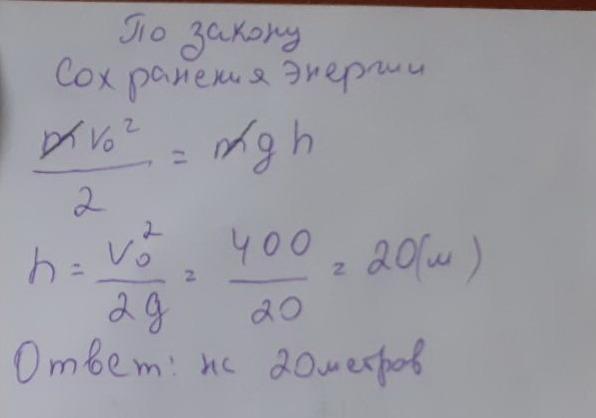 По закону
Сохранения энергии
mv₀²/2 = mgh
h = v₀²/2g = 400/20 = 20(м)
Ответ: на 20 метров